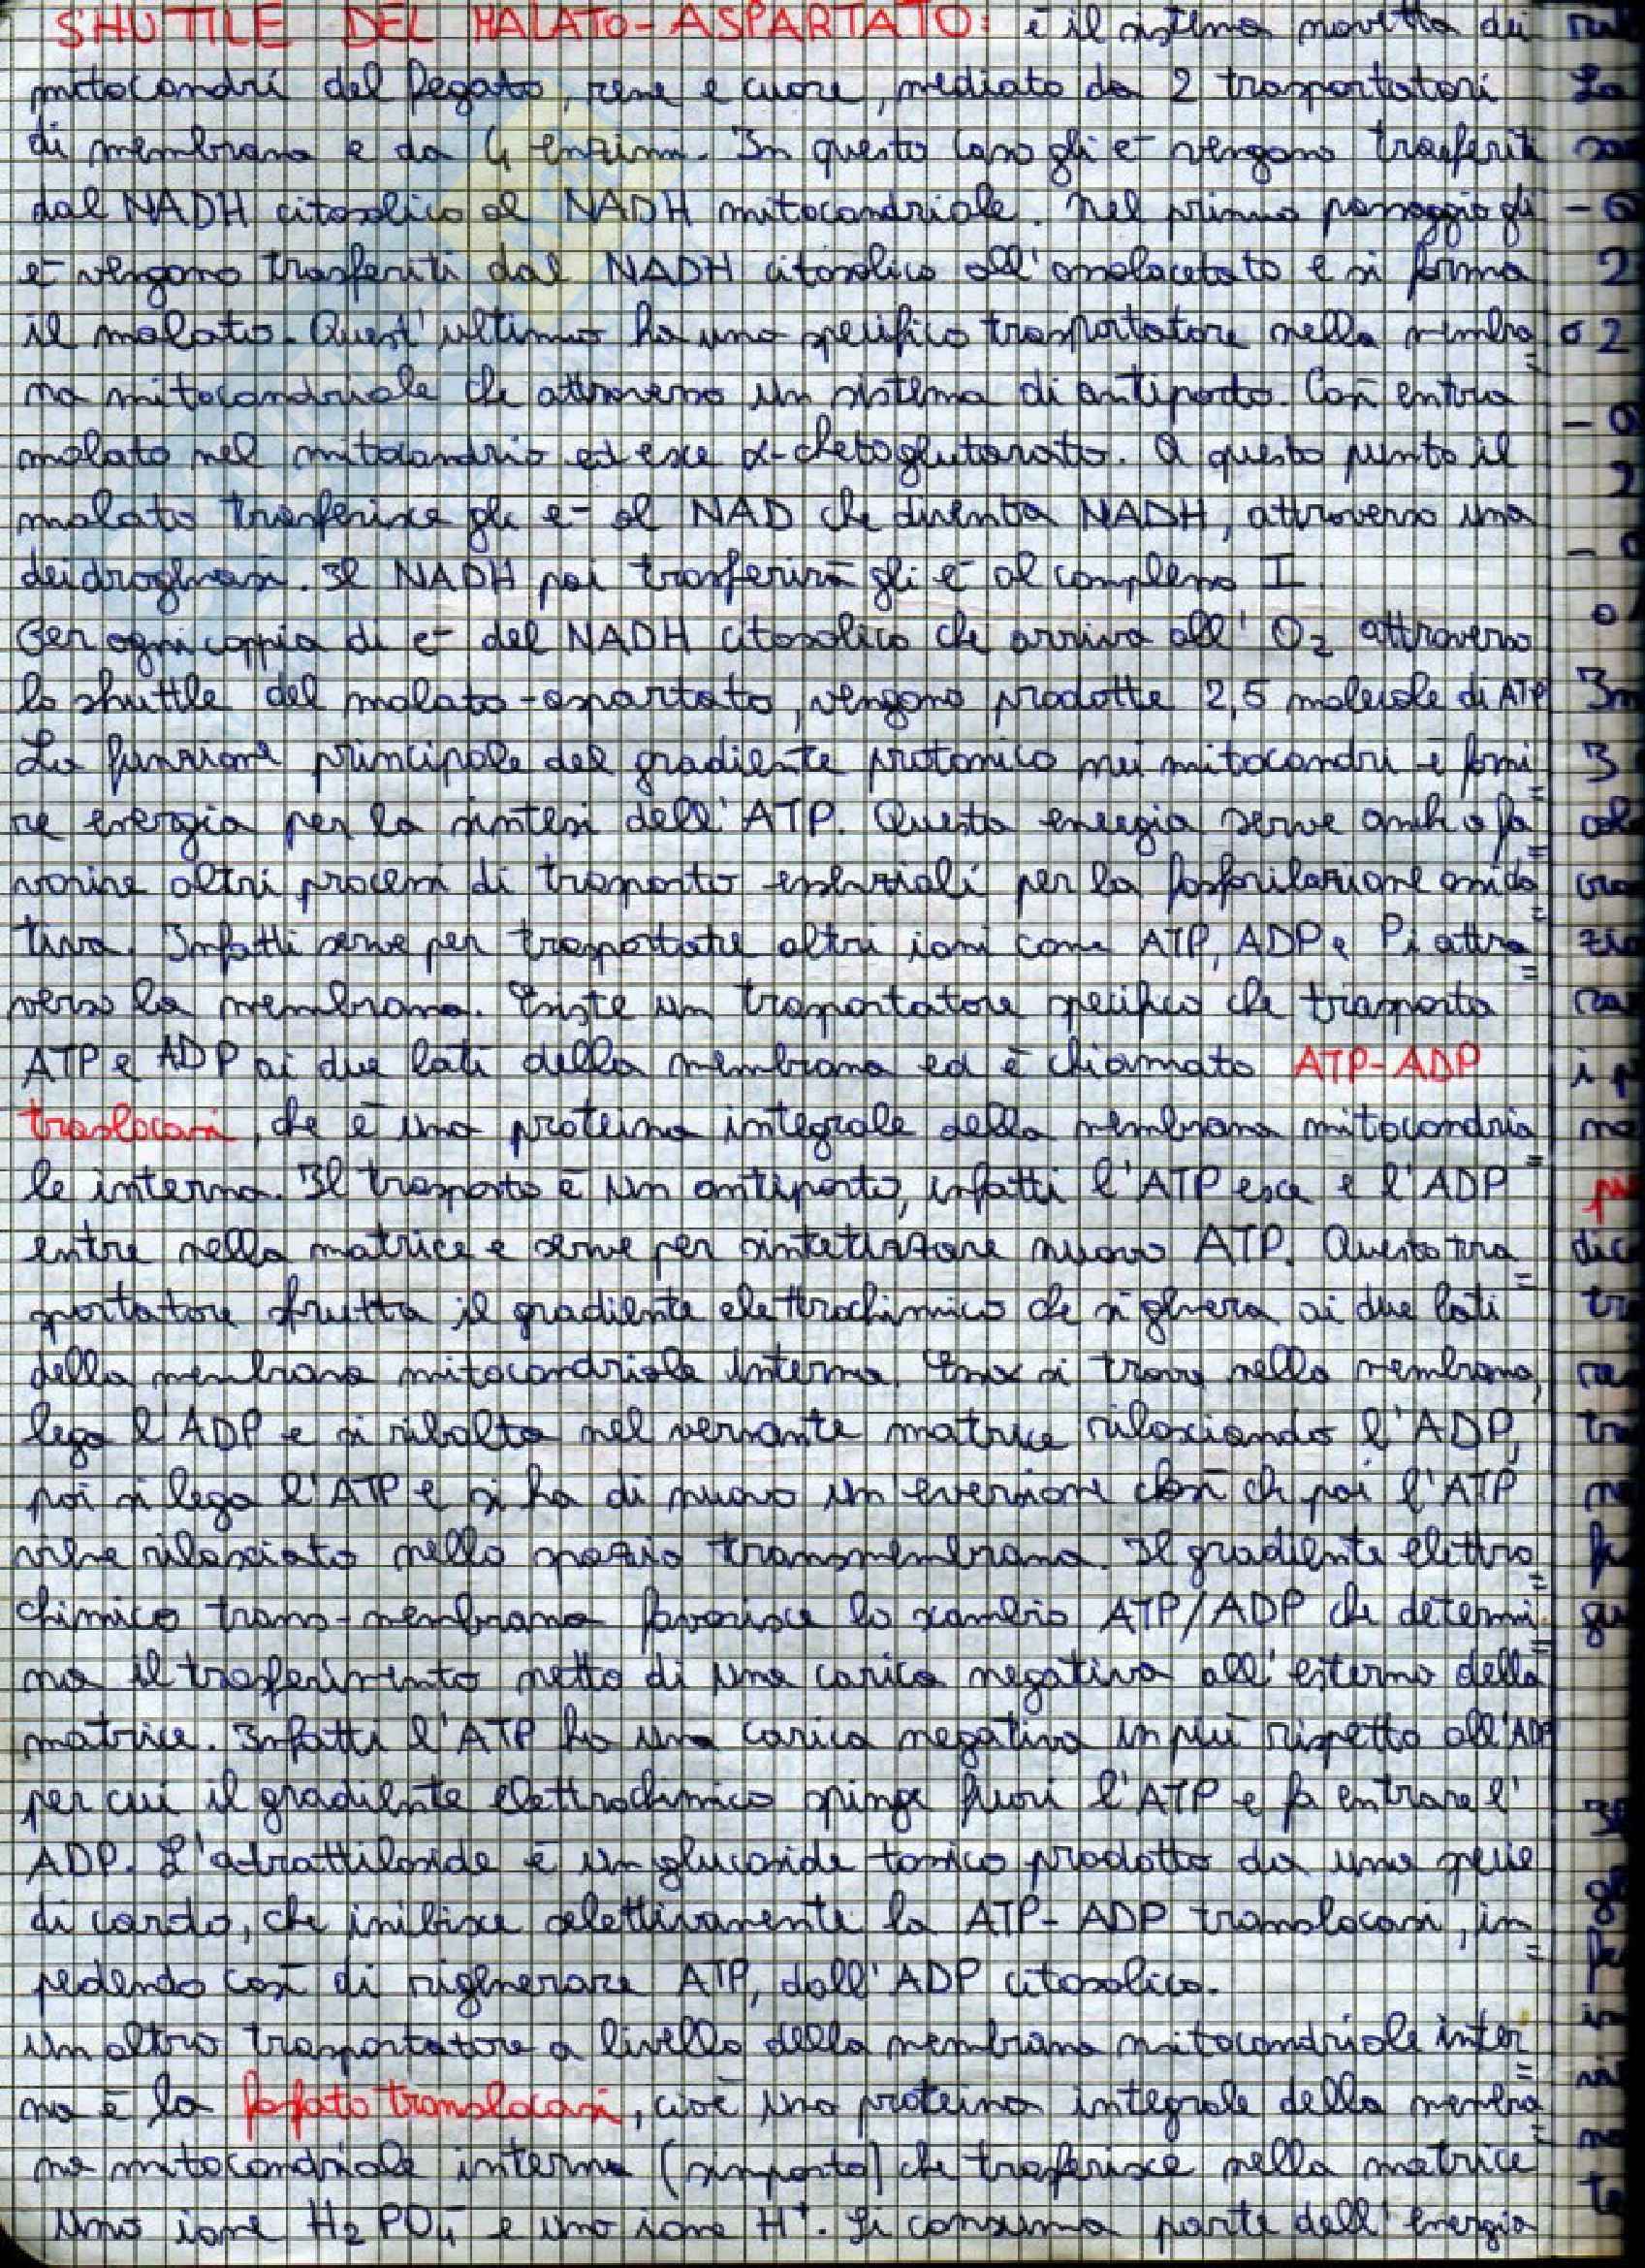 SHUTTLE DEL MALATO-ASPARTATO: è il sistema navetta dei
mitocondri del fegato, rene e cuore, mediato da 2 trasportatori
di membrana e da 4 enzimi. In questo caso gli e⁻ vengono trasferiti
dal NADH citosolico al NADH mitocondriale. Nel primo passaggio gli
e⁻ vengono trasferiti dal NADH citosolico all'ossalacetato e si forma
il malato. Quest'ultimo ha uno specifico trasportatore nella membra=
na mitocondriale che attraverso un sistema di antiporto. Così entra
malato nel mitocondrio ed esce α-chetoglutarato. A questo punto il
malato trasferisce gli e⁻ al NAD che diventa NADH, attraverso una
deidrogenasi. Il NADH poi trasferirà gli e⁻ al complesso I.
Per ogni coppia di e⁻ del NADH citosolico che arriva all' O₂ attraverso
lo shuttle del malato-aspartato, vengono prodotte 2,5 molecole di ATP
La funzione principale del gradiente protonico nei mitocondri è forni=
re energia per la sintesi dell'ATP. Questa energia serve anche a fa=
vorire altri processi di trasporto essenziali per la fosforilazione ossida=
tiva. Infatti serve per trasportare altri ioni come ATP, ADP e Pi attra=
verso la membrana. Esiste un trasportatore specifico che trasporta
ATP e ADP ai due lati della membrana ed è chiamato ATP-ADP
traslocasi, che è una proteina integrale della membrana mitocondria=
le interna. Il trasporto è un antiporto, infatti l'ATP esce e l'ADP
entra nella matrice e serve per sintetizzare nuovo ATP. Questo tra=
sportatore sfrutta il gradiente elettrochimico che si genera ai due lati
della membrana mitocondriale interna. Esso si trova nella membrana,
lega l'ADP e si ribalta nel versante matrice rilasciando l'ADP,
poi si lega l'ATP e si ha di nuovo un'eversione così che poi l'ATP
viene rilasciato nello spazio transmembrana. Il gradiente elettro=
chimico trans-membrana favorisce lo scambio ATP/ADP che determi=
na il trasferimento netto di una carica negativa all'esterno della
matrice. Infatti l'ATP ha una carica negativa in più rispetto all'ADP
per cui il gradiente elettrochimico spinge fuori l'ATP e fa entrare l'
ADP. L'atrattiloside è un glucoside tossico prodotto da una specie
di cardo, che inibisce selettivamente la ATP-ADP translocasi, im=
pedendo così di rigenerare ATP, dall'ADP citosolico.
Un altro trasportatore a livello della membrana mitocondriale inter=
na è la fosfato translocasi, cioè una proteina integrale della membra=
na mitocondriale interna (simporto) che trasferisce nella matrice
uno ione H₂PO₄⁻ e uno ione H⁺. Si consuma parte dell'energia